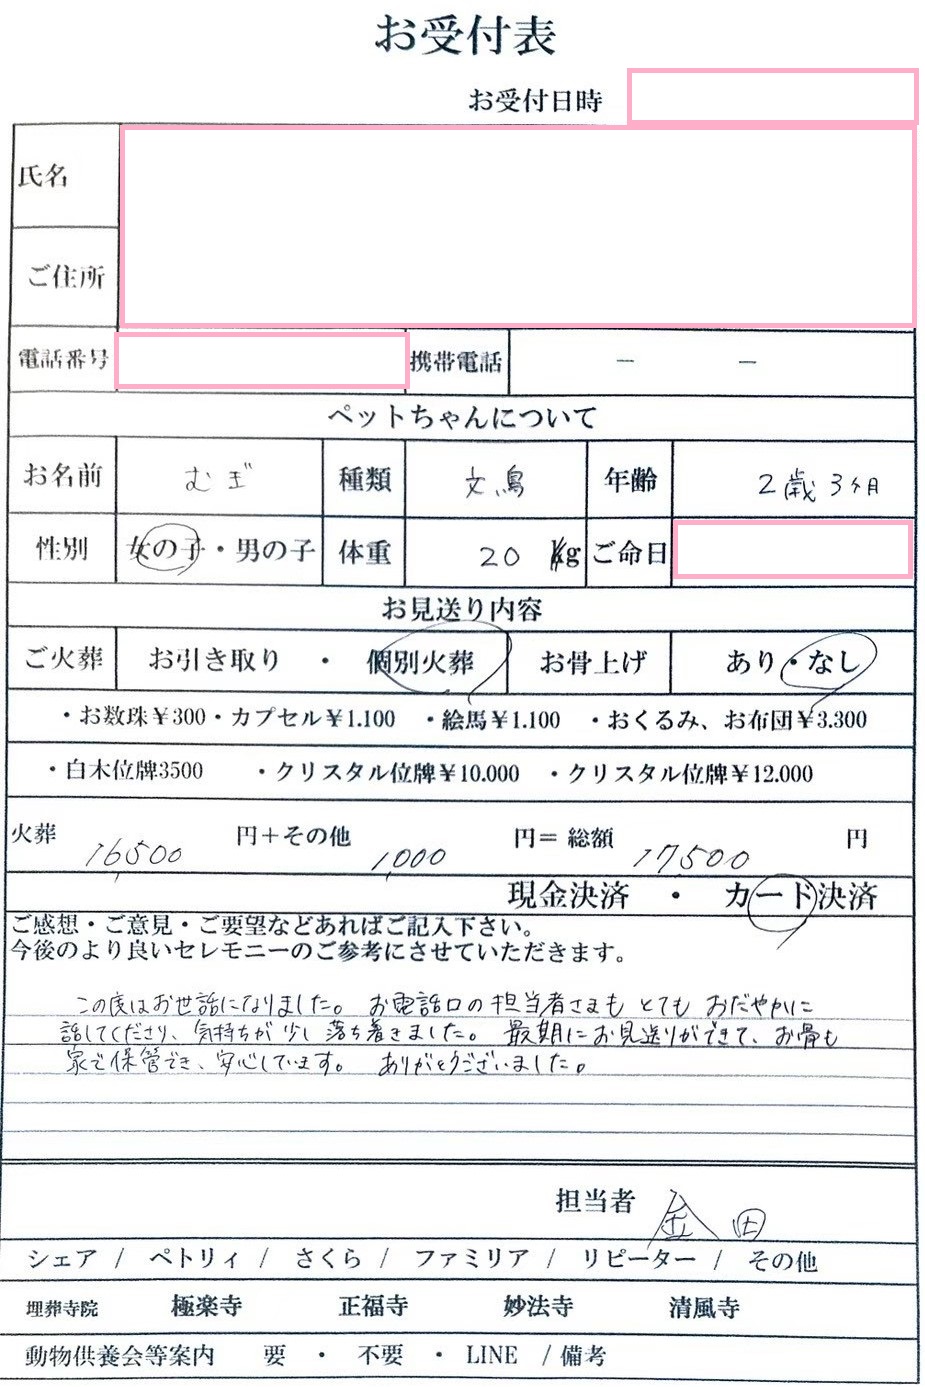 お受付表
お受付日時
氏名
ご住所
電話番号 携帯電話 － －
ペットちゃんについて
お名前 むぎ 種類 文鳥 年齢 2歳3ヶ月
性別 女の子・男の子 体重 20 kg ご命日
お見送り内容
ご火葬 お引き取り ・ 個別火葬 お骨上げ あり・なし
・お数珠￥300・カプセル￥1.100 ・絵馬￥1.100 ・おくるみ、お布団￥3.300
・白木位牌3500 ・クリスタル位牌￥10.000 ・クリスタル位牌￥12.000
火葬 16,500 円＋その他 1,000 円＝ 総額 17,500 円
現金決済 ・ カード決済
ご感想・ご意見・ご要望などあればご記入下さい。
今後のより良いセレモニーのご参考にさせていただきます。
この度はお世話になりました。お電話口の担当者さまもとてもおだやかに
話してくださり、気持ちが少し落ち着きました。最期にお見送りができて、お骨も
家で保管でき、安心しています。ありがとうございました。
担当者
シェア / ペトリィ / さくら / ファミリア / リピーター / その他
埋葬寺院 極楽寺 正福寺 妙法寺 清風寺
動物供養会等案内 要 ・ 不要 ・ LINE / 備考